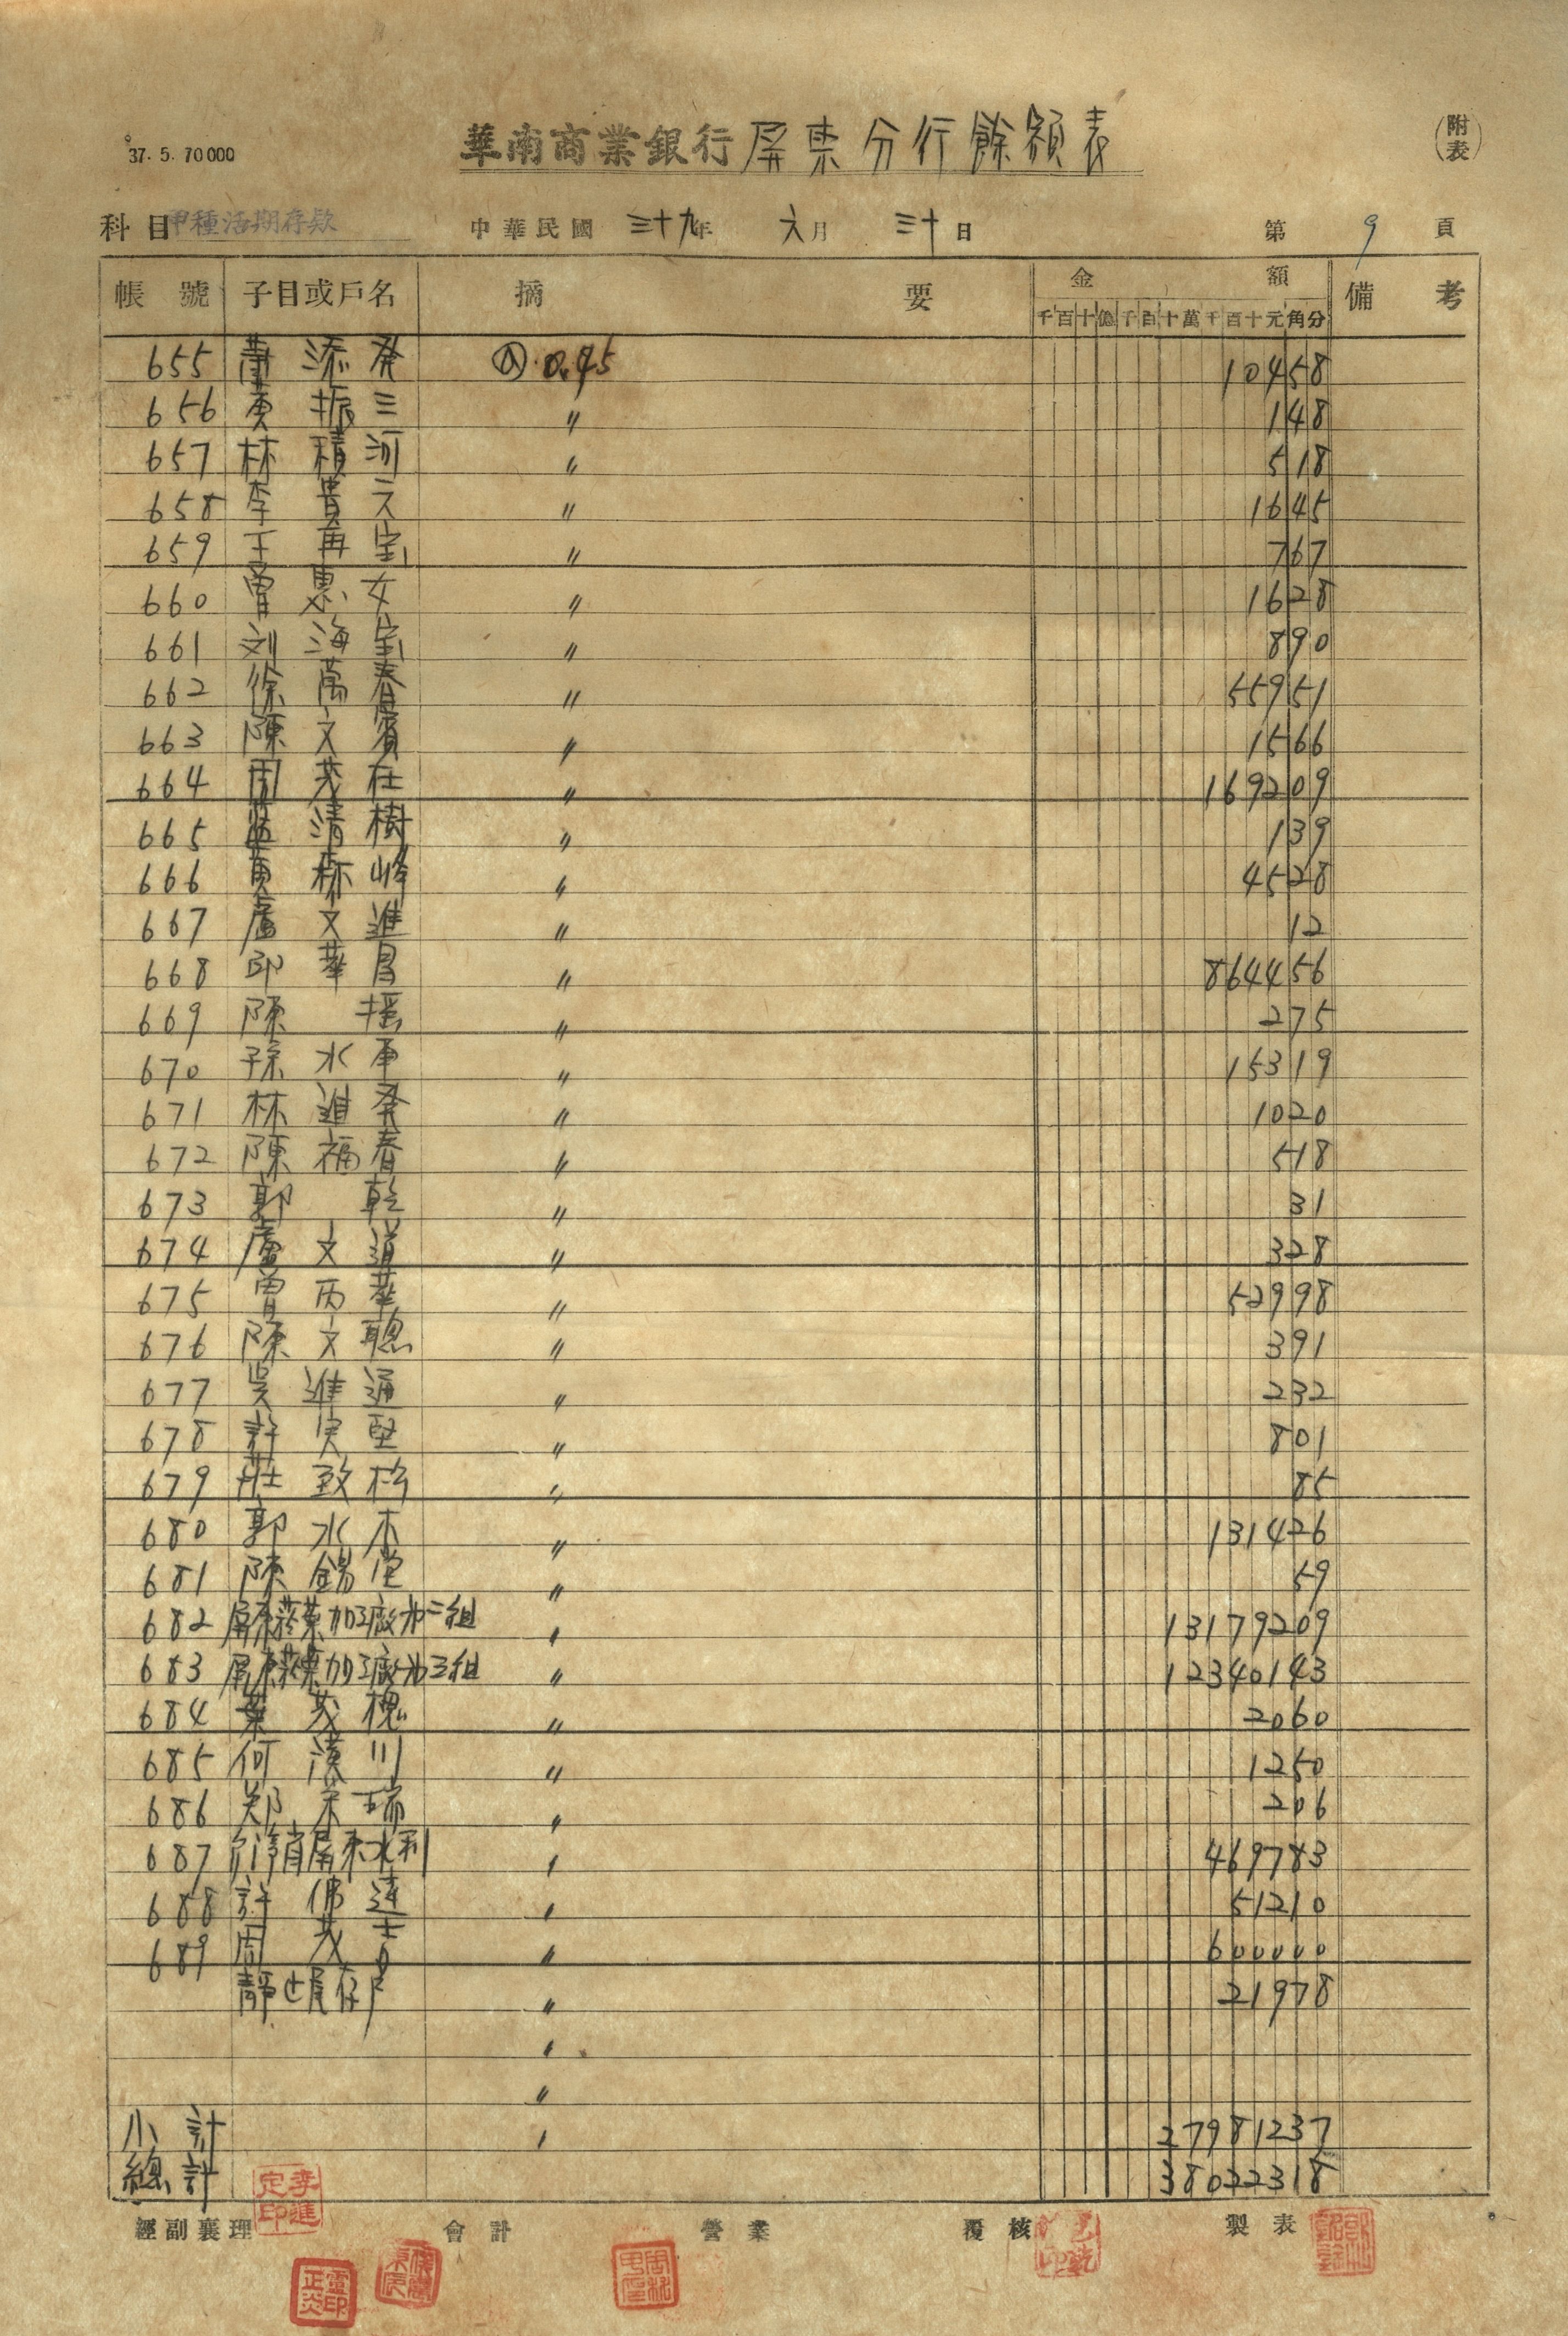 37. 5. 70000
華南商業銀行屏東分行餘額表
(附表)
科目 甲種活期存款 中華民國 三十九年 六月 三十日 第 9 頁
帳號 子目或戶名 摘要 金額 備考
千百十億千百十萬千百十元角分
655 蕭添発 @0.45 10458
656 黃振三 〃 148
657 林積河 〃 518
658 李貴 〃 1645
659 王再宝 〃 767
660 曾惠女 〃 1628
661 刘海宝 〃 890
662 徐萬春 〃 55951
663 陳文賓 〃 1566
664 周茂在 〃 169209
665 藍清樹 〃 139
666 黃森峰 〃 4528
667 盧文進 〃 12
668 邱華昌 〃 864456
669 陳 〃 275
670 孫水 〃 15319
671 林進発 〃 1020
672 陳福春 〃 518
673 郭乾 〃 31
674 盧文道 〃 328
675 曾丙華 〃 52998
676 陳文聰 〃 391
677 吳進通 〃 232
678 許实堅 〃 801
679 莊致松 〃 85
680 郭水木 〃 131426
681 陳錫堂 〃 59
682 屏東菸葉加工廠才二組 〃 13179209
683 屏東菸葉加工廠才三組 〃 12340143
684 葉茂槐 〃 2060
685 何漢川 〃 1250
686 郑荣瑞 〃 206
687 台湾省屏東水利 〃 469783
688 許佛達 〃 51210
689 周茂吉 〃 600000
靜止尾存戶 〃 21978
〃
〃
小計 〃 27981237
總計 38022318
經副襄理 會計 營業 覆核 製表
李進定印